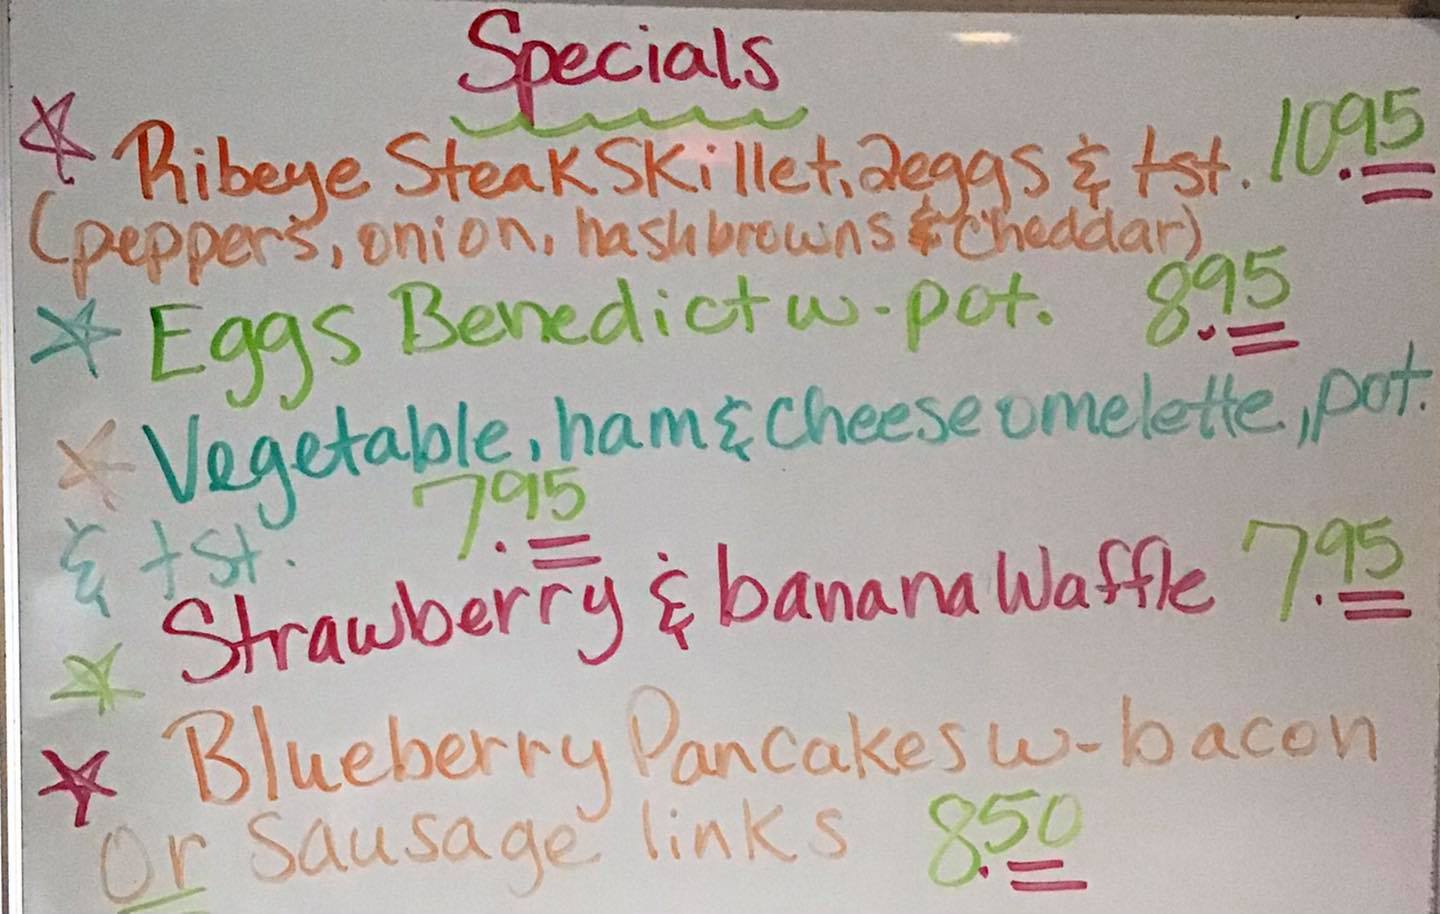 Specials
Ribeye Steak Skillet, 2eggs & tst. 10.95
(peppers, onion, hashbrowns & cheddar)
Eggs Benedict w-pot. 8.95
Vegetable, ham & cheese omelette, pot.
& tst. 7.95
Strawberry & banana Waffle 7.95
Blueberry Pancakes w-bacon
or sausage links 8.50